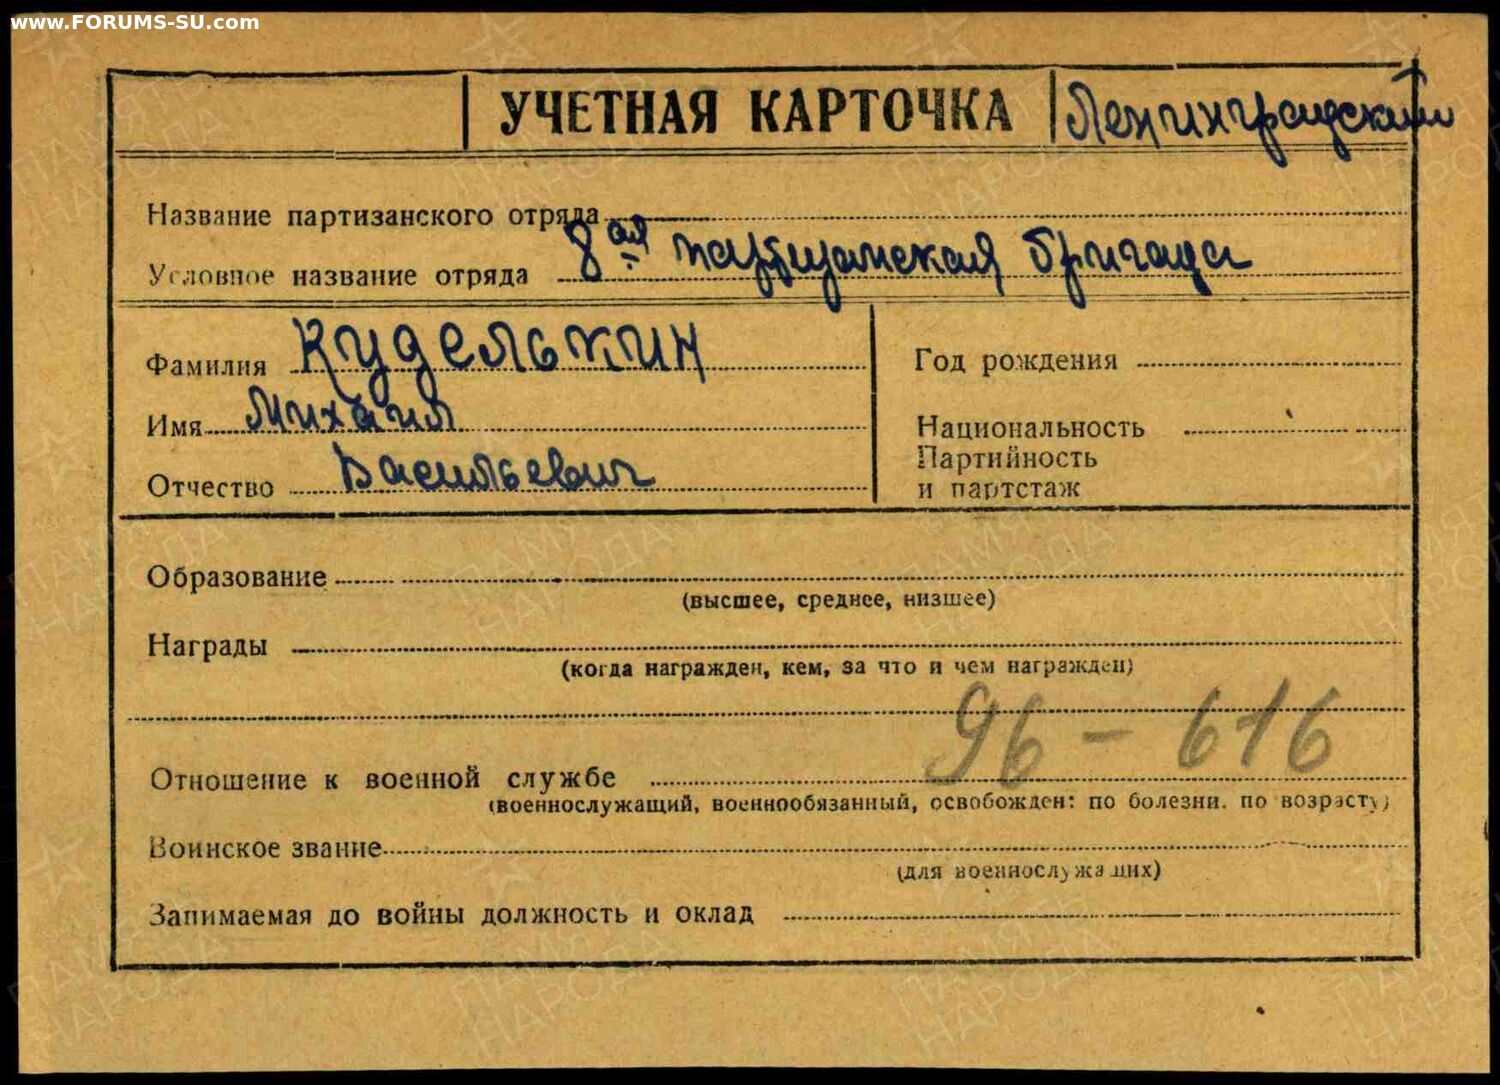 www.FORUMS-SU.com
УЧЕТНАЯ КАРТОЧКА
Ленинградский
Название партизанского отряда
8ая партизанская бригада
Условное название отряда
Фамилия Куделькин
Год рождения
Имя Михаил
Национальность
Партийность
и партстаж
Отчество Васильевич
Образование
(высшее, среднее, низшее)
Награды
(когда награжден, кем, за что и чем награжден)
96 - 616
Отношение к военной службе
(военнослужащий, военнообязанный, освобожден: по болезни. по возрасту)
Воинское звание
(для военнослужащих)
Занимаемая до войны должность и оклад
ПАМЯТЬ
НАРОДА